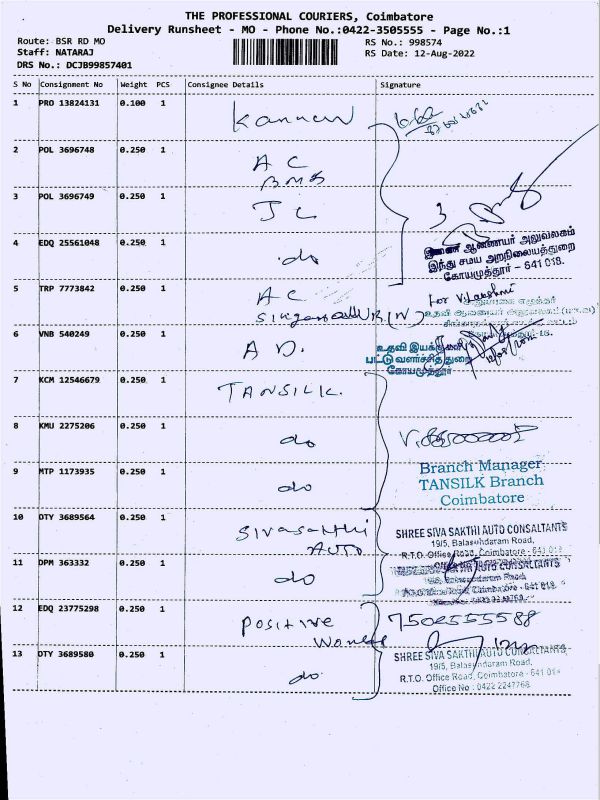 THE PROFESSIONAL COURIERS, Coimbatore
Delivery Runsheet - MO - Phone No.:0422-3505555 - Page No.:1
Route: BSR RD MO
RS No.: 998574
Staff: NATARAJ
RS Date: 12-Aug-2022
DRS No.: DCJB99857401
S No Consignment No Weight PCS Consignee Details Signature
1 PRO 13824131 0.100 1 Kannan
2 POL 3696748 0.250 1 A C
BMS
3 POL 3696749 0.250 1 J C
4 EDQ 25561048 0.250 1 do
ஆணையர் அலுவலகம்
இந்து சமய அறநிலையத்துறை
கோயமுத்தூர் - 641 018.
5 TRP 7773842 0.250 1 A C
for V.Lakshmi
6 VNB 540249 0.250 1 A D.
உதவி இயக்குனர்
பட்டு வளர்ச்சித்துறை
கோயமுத்தூர்
7 KCM 12546679 0.250 1 TANSILK.
8 KMU 2275206 0.250 1 do
9 MTP 1173935 0.250 1 do
Branch Manager
TANSILK Branch
Coimbatore
10 DTY 3689564 0.250 1 Sivasakthi
AUTO
SHREE SIVA SAKTHI AUTO CONSALTANTS
19/5, Balasundaram Road,
R.T.O. Office Road, Coimbatore - 641 018
11 DPM 363332 0.250 1 do
12 EDQ 23775298 0.250 1 positive
women
7502555588
13 DTY 3689580 0.250 1 do
SHREE SIVA SAKTHI AUTO CONSALTANTS
19/5, Balasundaram Road,
R.T.O. Office Road, Coimbatore - 641 018
Office No : 0422 2247768